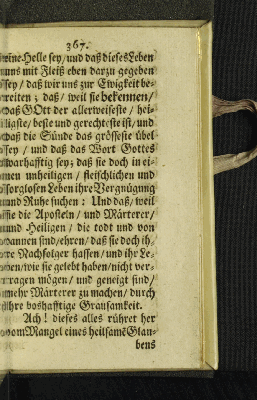 367.
eine Helle sey/ und daß dieses Leben
uns mit Fleiß eben darzu gegeben
sey/ daß wir uns zur Ewigkeit be-
reiten; daß/ weil sie bekennen/
daß GOtt der allerweiseste/ hei-
ligste/ beste und gerechteste ist/ und
daß die Sünde das grösseste übel
sey/ und daß das Wort Gottes
warhafftig sey; daß sie doch in ei-
nem unheiligen/ fleischlichen und
sorglosen Leben ihre Vergnügung
und Ruhe suchen: Und daß/ weil
sie die Aposteln/ und Märterer/
und Heiligen/ die todt und von
dannen sind/ ehren/ daß sie doch ih-
re Nachfolger hassen/ und ihr Le-
ben/ wie sie gelebt haben/ nicht ver-
tragen mögen/ und geneigt sind/
mehr Märterer zu machen/ durch
ihre boshafftige Grausamkeit.
Ach! dieses alles rühret her
vom Mangel eines heilsamē Glau-
bens